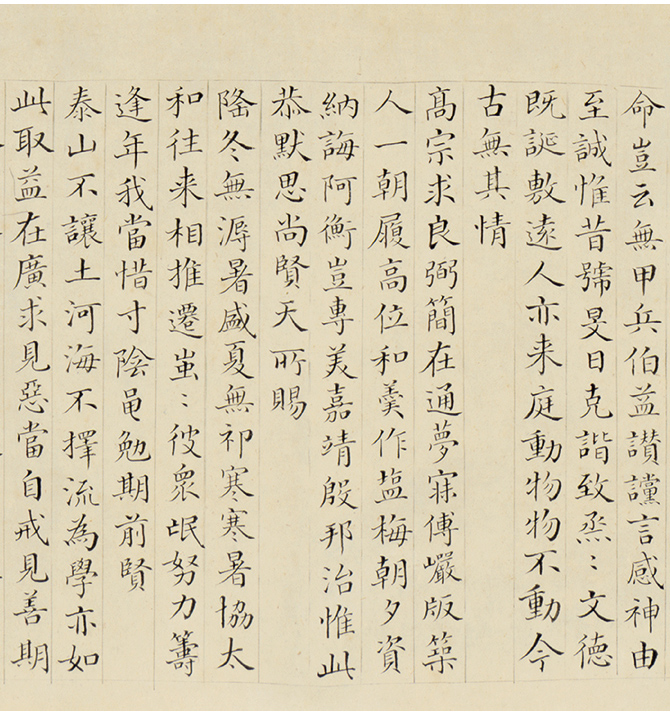 命豈云無甲兵伯益讃讜言感神由
至誠惟昔號旻日克諧致烝〻文德
既誕敷遠人亦来庭動物物不動今
古無其情
髙宗求良弼簡在通夢寐傅巖版築
人一朝履高位和羹作塩梅朝夕資
納誨阿衡豈專美嘉靖殷邦治惟此
恭默思尚賢天所賜
隆冬無溽暑盛夏無祁寒寒暑協太
和往来相推遷蚩〻彼衆氓努力籌
逢年我當惜寸陰黽勉期前賢
泰山不讓土河海不擇流為學亦如
此取益在廣求見惡當自戒見善期